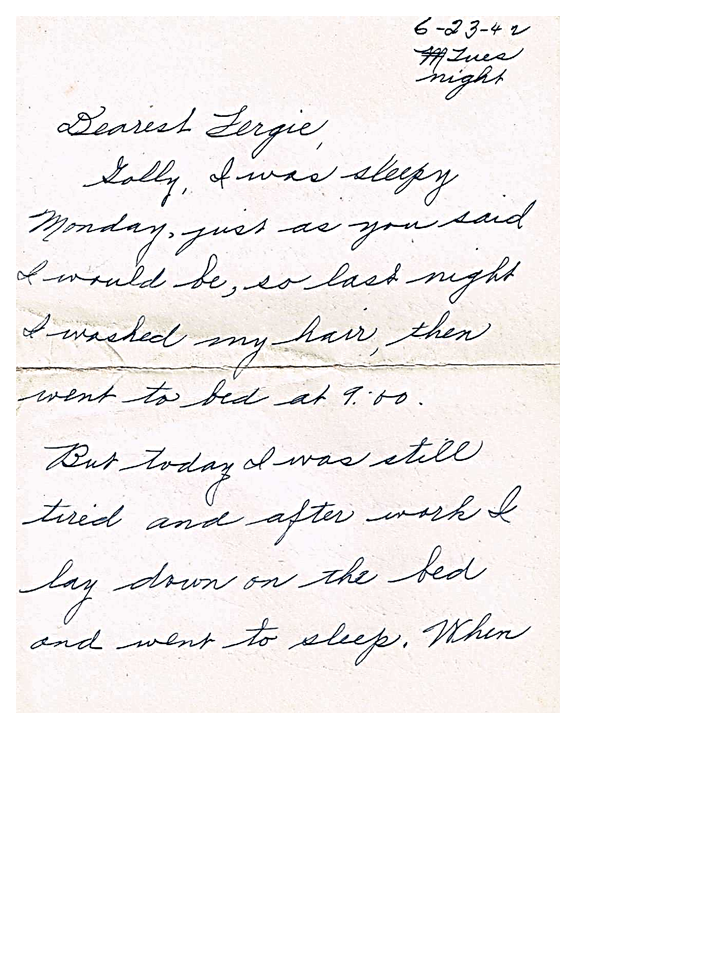 6-23-42
Tues
night
Dearest Fergie,
Golly, I was sleepy
Monday, just as you said
I would be, so last night
I washed my hair, then
went to bed at 9:00.
But today I was still
tired and after work I
lay down on the bed
and went to sleep. When